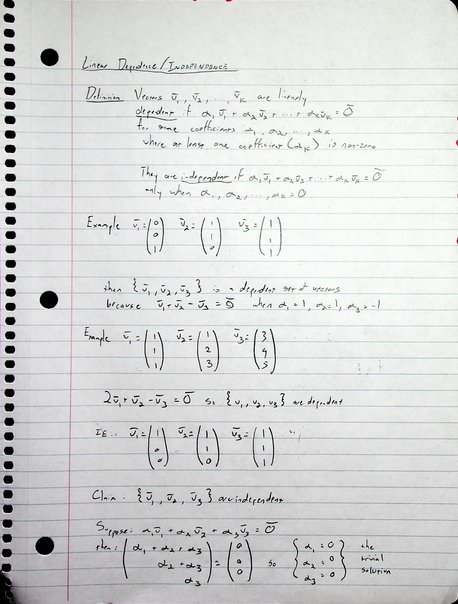 Linear Dependence/INDEPENDENCE
Definition Vectors v̄₁, v̄₂, ..., v̄ₖ are linearly
dependent if α₁v̄₁ + α₂v̄₂ + ... + αₖv̄ₖ = 0̄
for some coefficients α₁, α₂, ..., αₖ
where at least one coefficient (αₖ) is non-zero
They are independent if α₁v̄₁ + α₂v̄₂ + ... + αₖv̄ₖ = 0̄
only when α₁, α₂, ..., αₖ = 0
Example v̄₁ = (0 0 1) v̄₂ = (1 1 0) v̄₃ = (1 1 1)
then {v̄₁, v̄₂, v̄₃} is a dependent set of vectors
because v̄₁ + v̄₂ - v̄₃ = 0̄ when α₁ = 1, α₂ = 1, α₃ = -1
Example v̄₁ = (1 1 1) v̄₂ = (1 2 3) v̄₃ = (3 4 5)
2v̄₁ + v̄₂ - v̄₃ = 0̄ so {v₁, v₂, v₃} are dependent
IE: v̄₁ = (1 0 0) v̄₂ = (1 1 0) v̄₃ = (1 1 1)
Claim: {v̄₁, v̄₂, v̄₃} are independent
Suppose: α₁v̄₁ + α₂v̄₂ + α₃v̄₃ = 0̄
then: (α₁ + α₂ + α₃ α₂ + α₃ α₃) = (0 0 0) so {α₁ = 0 α₂ = 0 α₃ = 0} the trivial solution